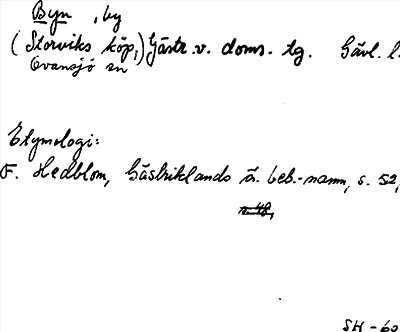 Byn, by
(Storviks köp,) Gästr. v. doms. tg. Gävl. l.
Ovansjö sn
Etymologi:
F. Hedblom, Gästriklands ä. beb.-namn, s. 52,
s. 48,
SH - 60